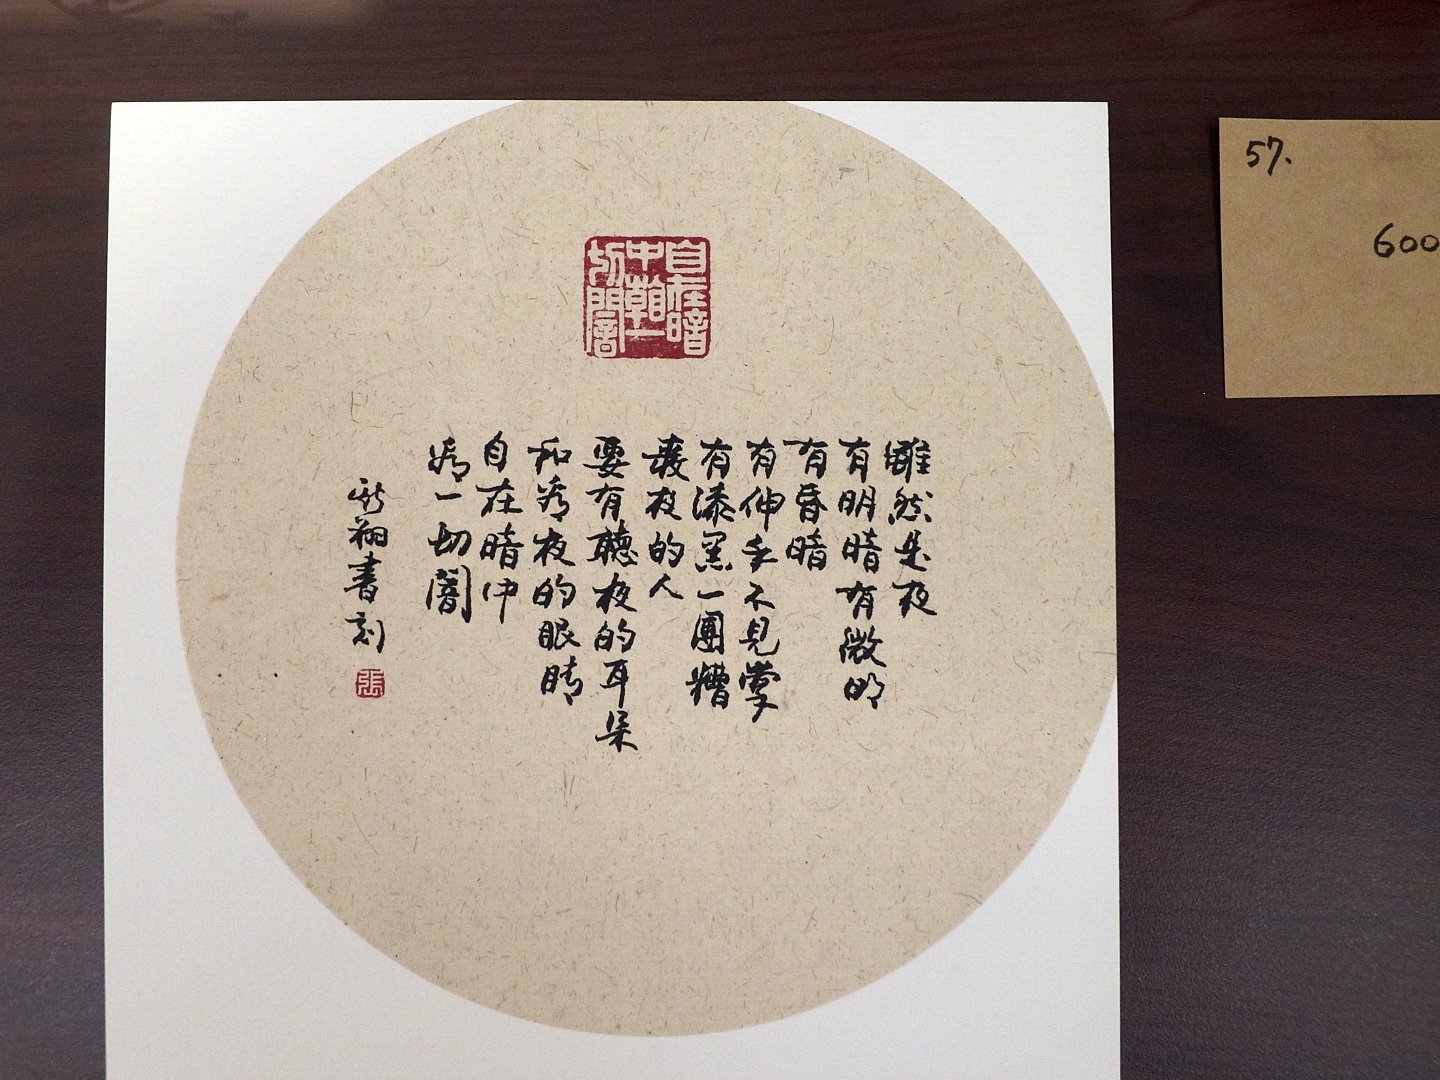 自在暗
中看一
切闇
雖然是夜
有明暗有微明
有昏暗
有伸手不見掌
有漆黑一團糟
愛夜的人
要有聽夜的耳朵
和看夜的眼睛
自在暗中
看一切闇
翔書刻
張
57.
600